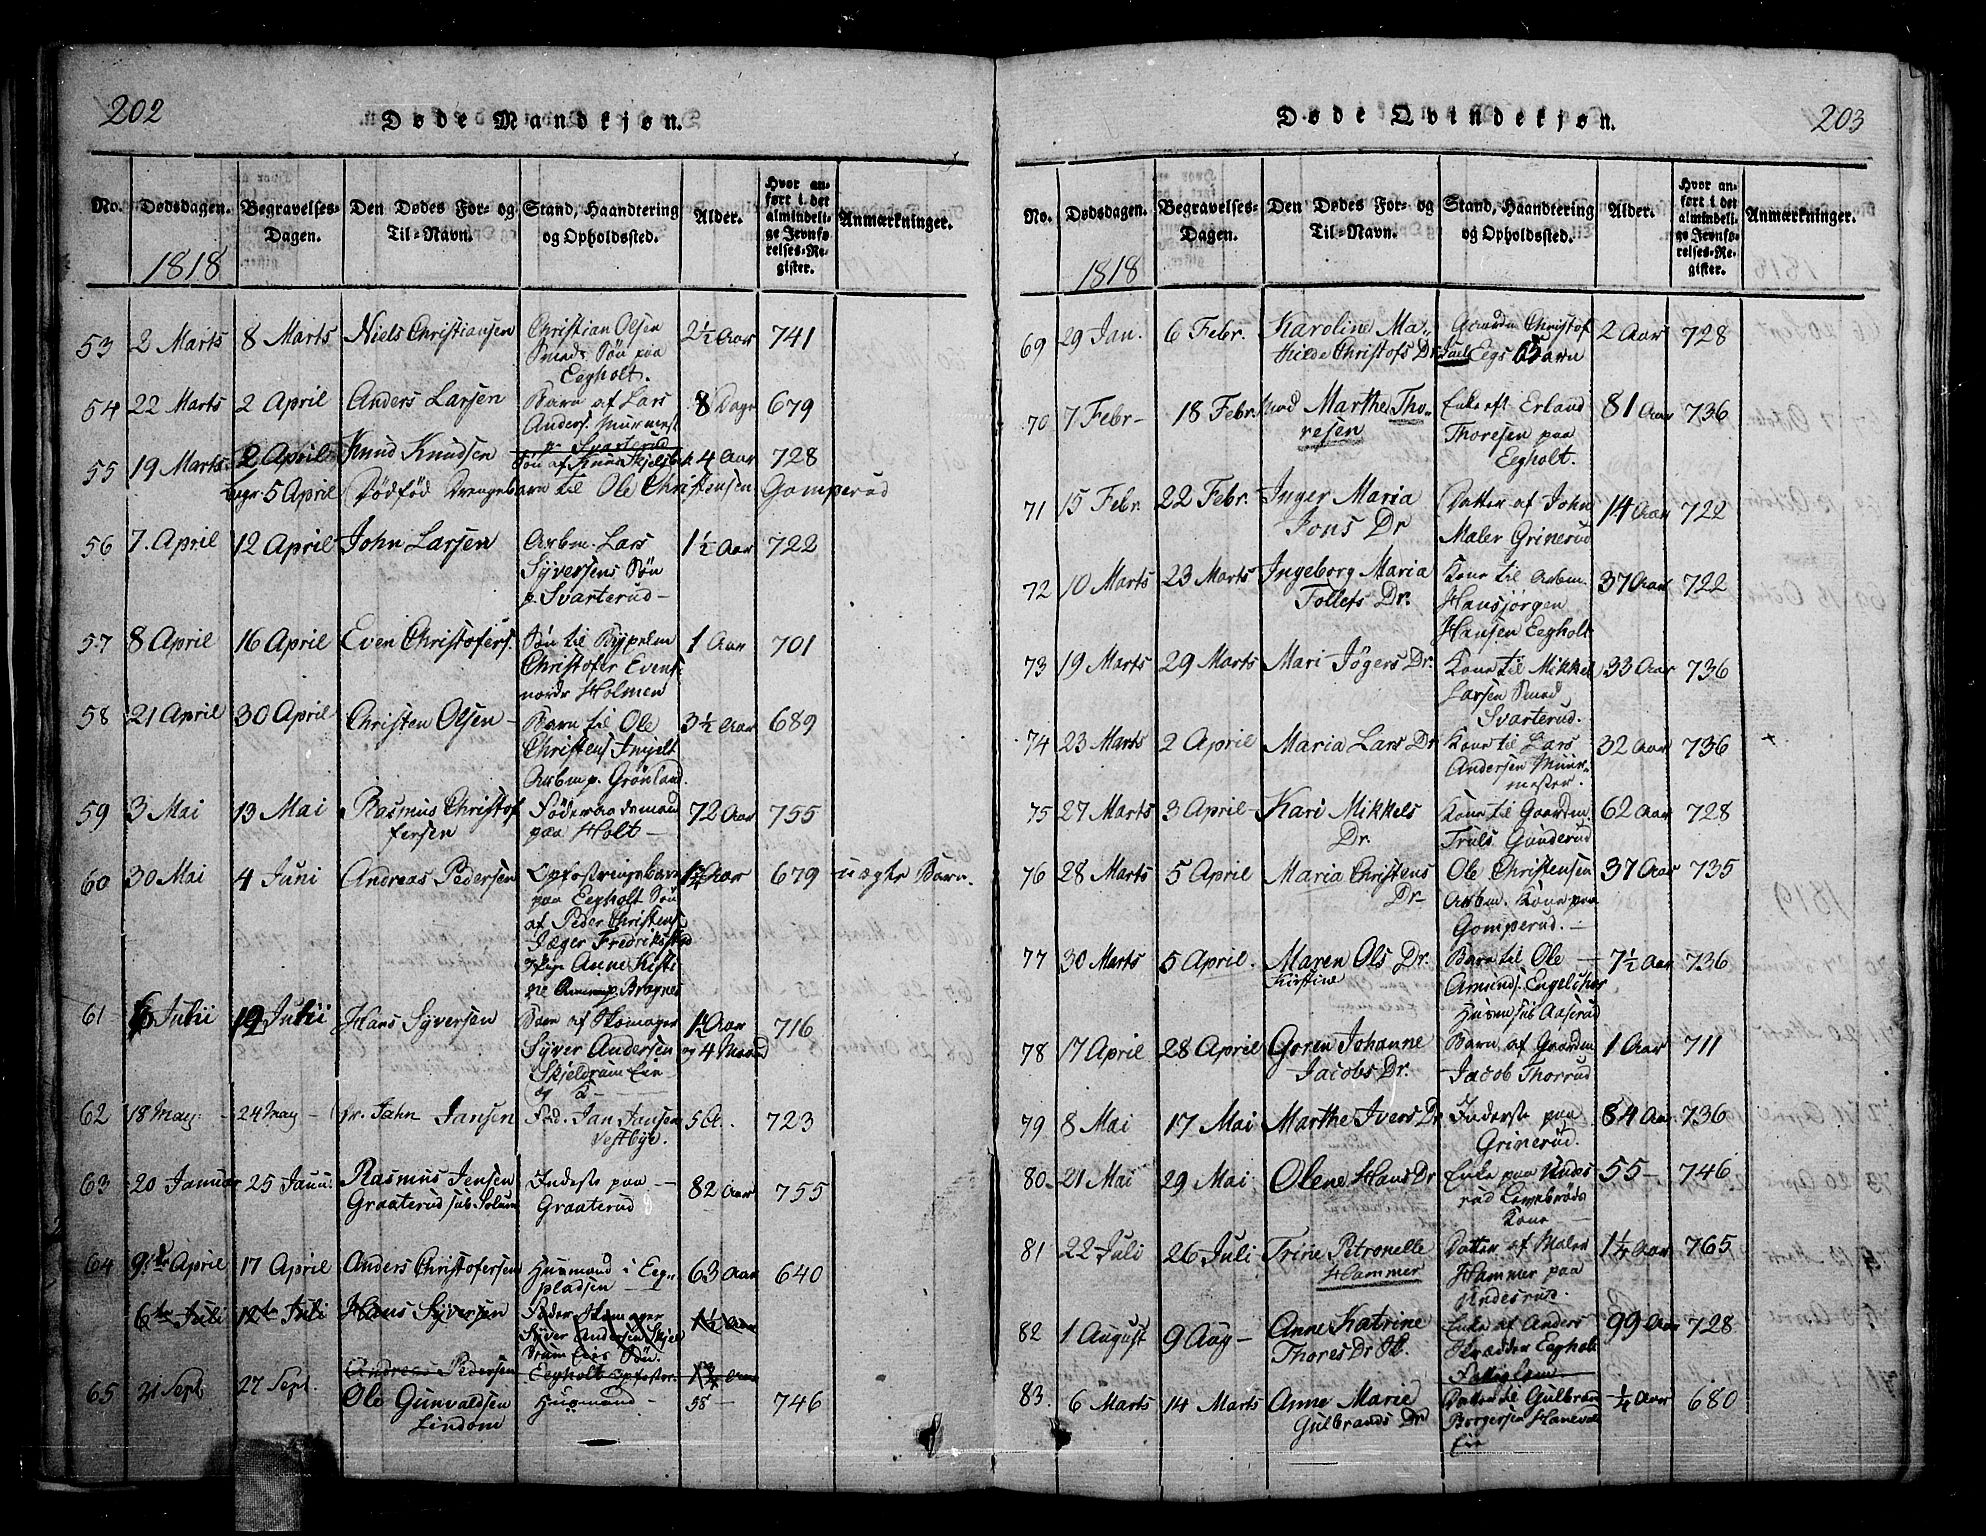 202
Døde Mandkjøn.
No.
Dødsdagen.
Begravelses-Dagen.
Den Dødes For- og Til-Navn.
Stand, Haandtering og Opholdssted.
Alder.
Hvor anført i det almindelige Jevnførelses-Register.
Anmærkninger.
1818
53 2 Marts 8 Marts Niels Christiansen Christian Olsen 2½ Aar 741
Smeds Søn paa
Eegholt.
54 22 Marts 2 April Anders Larsen Barn af Lars 8 Dage 679
Anders. Muurmest
p. Svarterud
55 19 Marts 2 April Knud Knudsen Søn af Knud 4 Aar 728
5 April Dødfød Drengebarn til Ole Christensen Gomperud
56 7. April 12 April John Larsen Arbm. Lars 1½ Aar 722
Syversens Søn
p. Svarterud
57 8 April 16 April Even Christofers. Søn til 1 Aar 701
Christofer Evens.
nordr Holmen
58 21 April 30 April Christen Olsen Barn til Ole 3½ Aar 689
Christens
Arbm p. Grönland.
59 3 Mai 13 Mai Rasmus Christof Föderaadsmand 72 Aar 755
fersen paa Holt
60 30 Mai 4 Juni Andreas Pedersen Opfostringsbarn Aar 679 uægte Barn.
paa Eegholt Søn
af Peder Christens
Jæger Fredriksstad
Anne Kisti
ne p. Bragnes
61 6 Julii 12 Julii Hans Syversen Barn af Skomager 1 Aar 716
Syver Andersen og 4 Maaned
Skjeldrum Eie
62 18 May 24 May Jahn Jansen Jan Jansen 723
Vestbye.
63 20 Januar 25 Janu. Rasmus Jensen Inderste paa 82 Aar 755
Graaterud sub Solum Graaterud
64 9de April 17 April Anders Christofersen Huusmand i Eeg- 63 Aar 640
pladsen
6te Juli 12te Juli Hans Syversen Skomager 1½ Aar
Syver Andersen Skjel
drum Eies Søn.
Andreas Pedersen Eegholt Opfostr. 1¾ Aar
65 21 Sept. 27 Sept. Ole Gunvaldsen Huusmand 58 746
Lindom
203
Døde Qvindekjøn.
No.
Dødsdagen.
Begravelses-Dagen.
Den Dødes For- og Til-Navn.
Stand, Haandtering og Opholdssted.
Alder.
Hvor anført i det almindelige Jevnførelses-Register.
Anmærkninger.
1818
69 29 Jan. 6 Febr. Karoline Ma- Gaardm Christof 2 Aar 728
thilde Christofs Dr Eegs Barn
70 7 Febr 18 Febr Marthe Tho- Enke eft Erland 81 Aar 736
resen Thoresen paa
Eegholt.
71 15 Febr 22 Febr. Inger Maria Datter af John 14 Aar 722
Jons Dr Maler Grinerud
72 10 Marts 23 Marts Ingeborg Maria Kone til Arbm. 37 Aar 722
Tollefs Dr. Hansjørgen
Hansen Eegholt
73 19 Marts 29 Marts Mari Jögers Dr. Kone til Mikkel 33 Aar 736
Larsen Smed
Svarterud.
74 23 Marts 2 April Maria Lars Dr Kone til Lars 32 Aar 736 +
Andersen Muur-
mester.
75 27 Marts 3 April Kari Mikkels Kone til Gaardm 62 Aar 728
Dr. Truls Gunderud
76 28 Marts 5 April Maria Christens Ole Christensen 37 Aar 735
Dr Arbm. Kone paa
Gomperud.
77 30 Marts 5 April. Maren Ols Dr. Barn til Ole 7½ Aar 736
Kirstine Amunds.
sub Aaserud
78 17 April 28 April Goren Johanne Barn af Gaardm 1 Aar 711
Jacobs Dr. Jacob Thorrud
79 8 Mai 17 Mai Marthe Ivers Dr Inderste paa 84 Aar 736
Grinerud.
80 21 Mai 29 Mai Olene Hans Dr Enke paa Undes 55 746
rud
Kone
81 22 Juli 26 Juli Trine Petronelle Datter af Maler 1¼ Aar 765
Hammer Hammer paa
Undesrud.
82 1 August 9 Aug Anne Katrine Enke af Anders 99 Aar 728
Thores Dr Skrædder Eegholt
Fattiglem
83. 6 Marts 14 Marts Anne Marie Datter til Gulbran ¼ Aar 680
Gulbrands Dr Borgersen
Eie